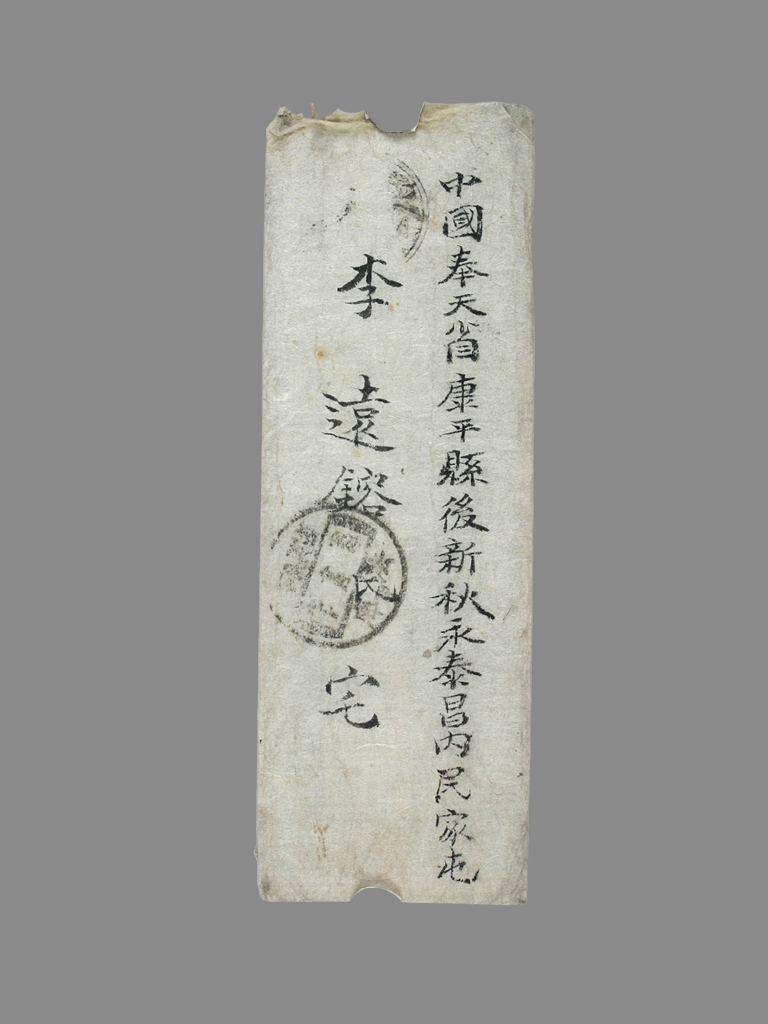 中國奉天省康平縣後新秋永泰昌內民家屯
李遠鎔氏宅